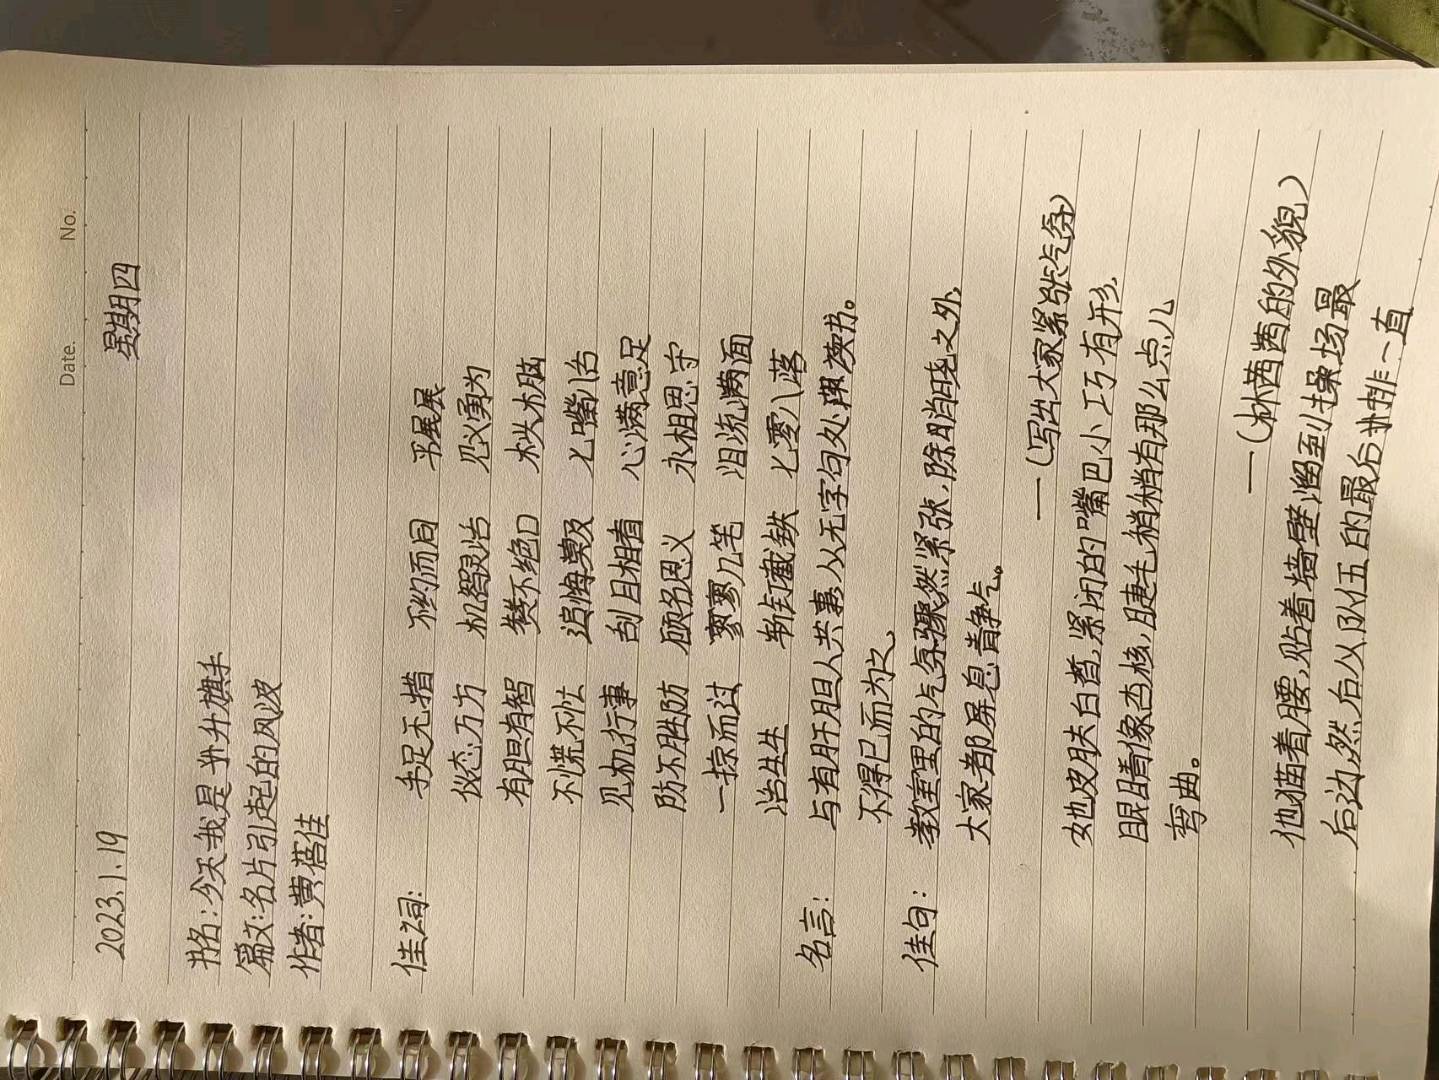 Date. No.
2023.1.19 星期四
书名:今天我是升旗手
篇文:名片引起的风波
作者:黄蓓佳
佳词:
手足无措 不约而同 平展展
仪态万方 机智灵活 见义勇为
有胆有智 赞不绝口 木头木脑
不慌不忙 追悔莫及 七嘴八舌
见机行事 刮目相看 心满意足
防不胜防 顾名思义 永相思守
一掠而过 寥寥几笔 泪流满面
活生生 斩钉截铁 七零八落
名言: 与有肝胆人共事,从无字句处读书。
不得已而为之,
佳句: 教室里的气氛骤然紧张,除肖晓之外,
大家都屏息静气。
——(写出大家紧张气氛)
她皮肤白皙,紧闭的嘴巴小巧有形,
眼睛像杏核,睫毛稍稍有那么点儿
弯曲。
——(林茜茜的外貌)
他猫着腰,贴着墙壁溜到操场最
后边,然后从队伍的最后一排一直